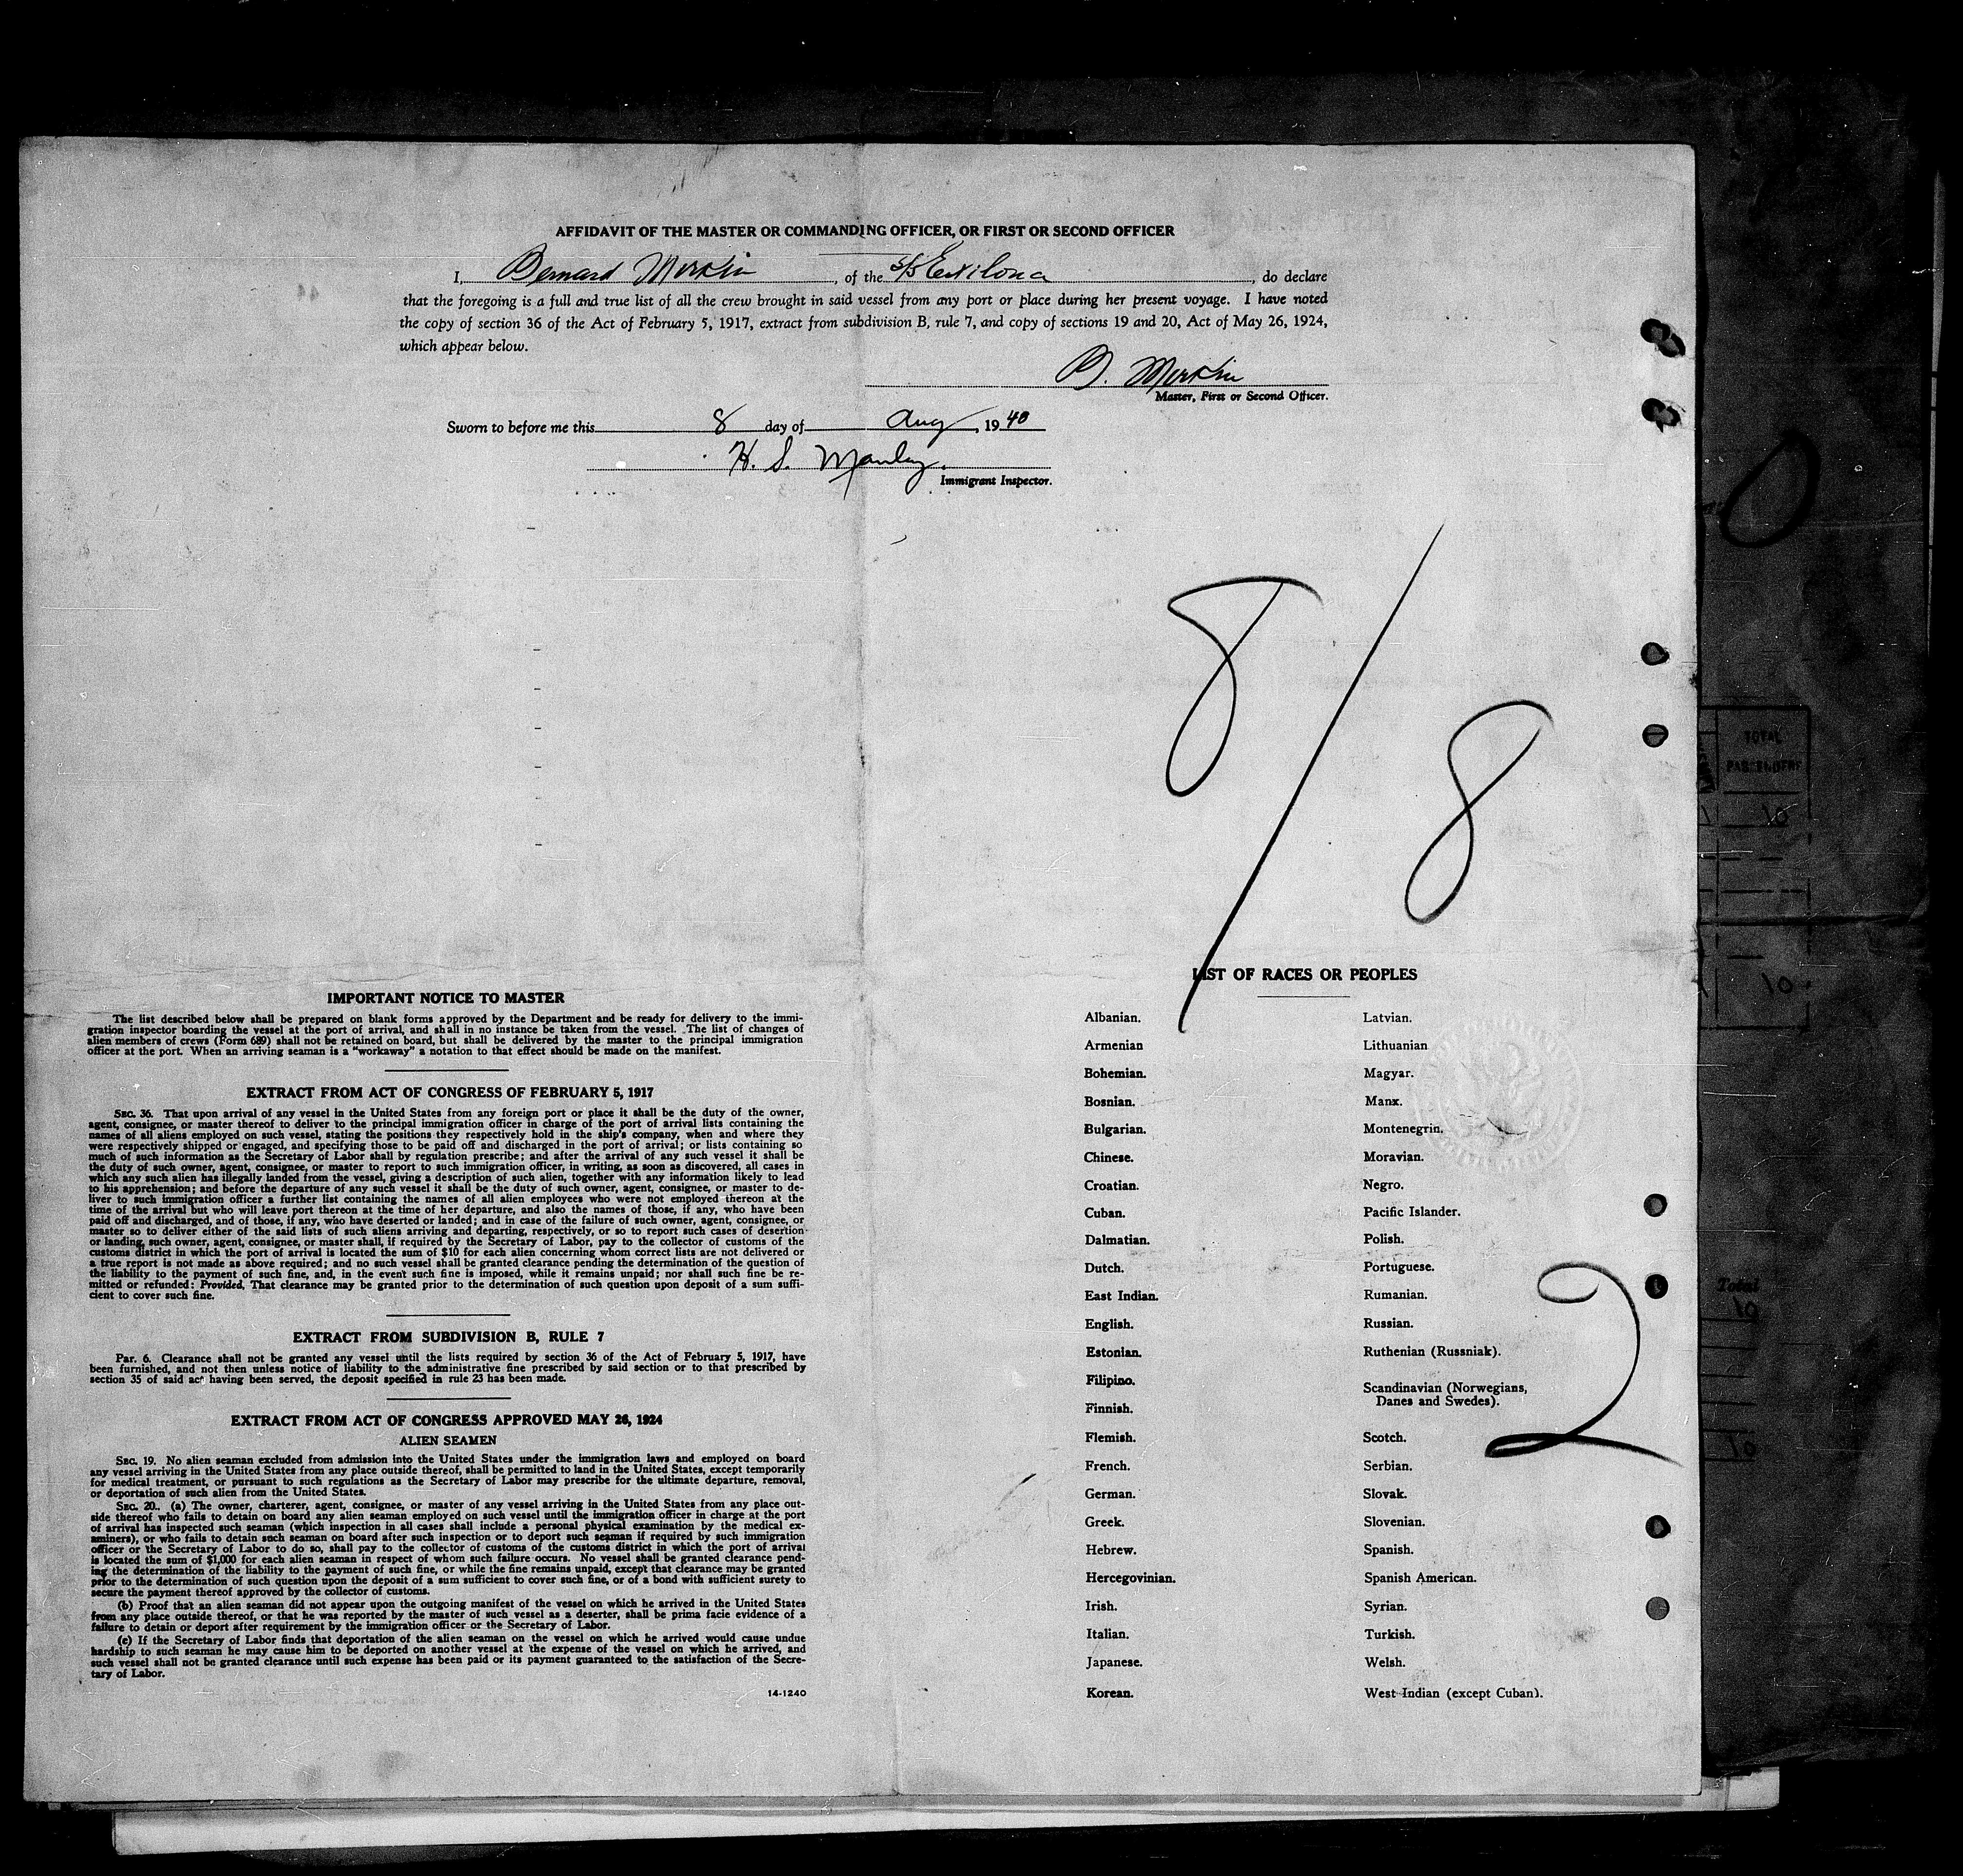 AFFIDAVIT OF THE MASTER OR COMMANDING OFFICER, OR FIRST OR SECOND OFFICER
I, Bernard Mirkin, of the S/S Exilona, do declare
that the foregoing is a full and true list of all the crew brought in said vessel from any port or place during her present voyage. I have noted
the copy of section 36 of the Act of February 5, 1917, extract from subdivision B, rule 7, and copy of sections 19 and 20, Act of May 26, 1924,
which appear below.
B. Mirkin
Master, First or Second Officer.
Sworn to before me this 8 day of Aug, 1940
H. S. Manley.
Immigrant Inspector.
8/8
IMPORTANT NOTICE TO MASTER
The list described below shall be prepared on blank forms approved by the Department and be ready for delivery to the immi-
gration inspector boarding the vessel at the port of arrival, and shall in no instance be taken from the vessel. The list of changes of
alien members of crews (Form 689) shall not be retained on board, but shall be delivered by the master to the principal immigration
officer at the port. When an arriving seaman is a "workaway" a notation to that effect should be made on the manifest.
EXTRACT FROM ACT OF CONGRESS OF FEBRUARY 5, 1917
SEC. 36. That upon arrival of any vessel in the United States from any foreign port or place it shall be the duty of the owner,
agent, consignee, or master thereof to deliver to the principal immigration officer in charge of the port of arrival lists containing the
names of all aliens employed on such vessel, stating the positions they respectively hold in the ship's company, when and where they
were respectively shipped or engaged, and specifying those to be paid off and discharged in the port of arrival; or lists containing so
much of such information as the Secretary of Labor shall by regulation prescribe; and after the arrival of any such vessel it shall be
the duty of such owner, agent, consignee, or master to report to such immigration officer, in writing, as soon as discovered, all cases in
which any such alien has illegally landed from the vessel, giving a description of such alien, together with any information likely to lead
to his apprehension; and before the departure of any such vessel it shall be the duty of such owner, agent, consignee, or master to de-
liver to such immigration officer a further list containing the names of all alien employees who were not employed thereon at the
time of the arrival but who will leave port thereon at the time of her departure, and also the names of those, if any, who have been
paid off and discharged, and of those, if any, who have deserted or landed; and in case of the failure of such owner, agent, consignee, or
master so to deliver either of the said lists of such aliens arriving and departing, respectively, or so to report such cases of desertion
or landing, such owner, agent, consignee, or master shall, if required by the Secretary of Labor, pay to the collector of customs of the
customs district in which the port of arrival is located the sum of $10 for each alien concerning whom correct lists are not delivered or
a true report is not made as above required; and no such vessel shall be granted clearance pending the determination of the question of
the liability to the payment of such fine, and, in the event such fine is imposed, while it remains unpaid; nor shall such fine be re-
mitted or refunded: Provided, That clearance may be granted prior to the determination of such question upon deposit of a sum suffi-
cient to cover such fine.
EXTRACT FROM SUBDIVISION B, RULE 7
Par. 6. Clearance shall not be granted any vessel until the lists required by section 36 of the Act of February 5, 1917, have
been furnished, and not then unless notice of liability to the administrative fine prescribed by said section or to that prescribed by
section 35 of said act having been served, the deposit specified in rule 23 has been made.
EXTRACT FROM ACT OF CONGRESS APPROVED MAY 26, 1924
ALIEN SEAMEN
SEC. 19. No alien seaman excluded from admission into the United States under the immigration laws and employed on board
any vessel arriving in the United States from any place outside thereof, shall be permitted to land in the United States, except temporarily
for medical treatment, or pursuant to such regulations as the Secretary of Labor may prescribe for the ultimate departure, removal,
or deportation of such alien from the United States.
SEC. 20. (a) The owner, charterer, agent, consignee, or master of any vessel arriving in the United States from any place out-
side thereof who fails to detain on board any alien seaman employed on such vessel until the immigration officer in charge at the port
of arrival has inspected such seaman (which inspection in all cases shall include a personal physical examination by the medical ex-
aminers), or who fails to detain such seaman on board after such inspection or to deport such seaman if required by such immigration
officer or the Secretary of Labor to do so, shall pay to the collector of customs of the customs district in which the port of arrival
is located the sum of $1,000 for each alien seaman in respect of whom such failure occurs. No vessel shall be granted clearance pend-
ing the determination of the liability to the payment of such fine, or while the fine remains unpaid, except that clearance may be granted
prior to the determination of such question upon the deposit of a sum sufficient to cover such fine, or of a bond with sufficient surety to
secure the payment thereof approved by the collector of customs.
(b) Proof that an alien seaman did not appear upon the outgoing manifest of the vessel on which he arrived in the United States
from any place outside thereof, or that he was reported by the master of such vessel as a deserter, shall be prima facie evidence of a
failure to detain or deport after requirement by the immigration officer or the Secretary of Labor.
(c) If the Secretary of Labor finds that deportation of the alien seaman on the vessel on which he arrived would cause undue
hardship to such seaman he may cause him to be deported on another vessel at the expense of the vessel on which he arrived, and
such vessel shall not be granted clearance until such expense has been paid or its payment guaranteed to the satisfaction of the Secre-
tary of Labor.
14-1240
LIST OF RACES OR PEOPLES
Albanian.
Armenian
Bohemian.
Bosnian.
Bulgarian.
Chinese.
Croatian.
Cuban.
Dalmatian.
Dutch.
East Indian.
English.
Estonian.
Filipino.
Finnish.
Flemish.
French.
German.
Greek.
Hebrew.
Hercegovinian.
Irish.
Italian.
Japanese.
Korean.
Latvian.
Lithuanian
Magyar.
Manx.
Montenegrin.
Moravian.
Negro.
Pacific Islander.
Polish.
Portuguese.
Rumanian.
Russian.
Ruthenian (Russniak).
Scandinavian (Norwegians,
Danes and Swedes).
Scotch.
Serbian.
Slovak.
Slovenian.
Spanish.
Spanish American.
Syrian.
Turkish.
Welsh.
West Indian (except Cuban).
2
0
TOTAL
PASSENGERS
10
10
Total
10
10